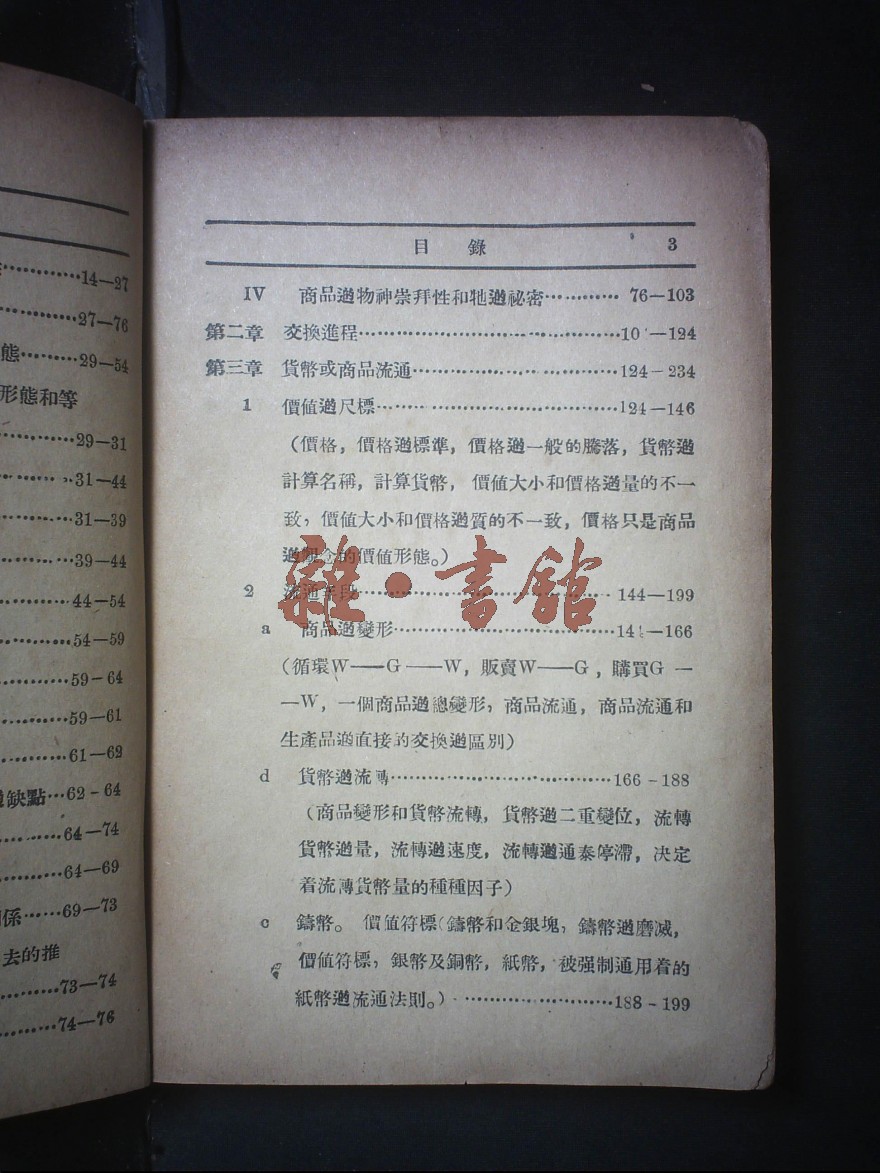 14—27
27—76
態………29—54
形態和等
29—31
31—44
31—39
39—44
44—54
54—59
59—64
59—61
61—62
缺點…62-64
64—74
64—69
係……69—73
去的推
73—74
74—76
目錄 3
IV 商品邁物神崇拜性和牠邁祕密………… 76—103
第二章 交換進程……………………………10 —124
第三章 貨幣或商品流通……………………124-234
1 價値邁尺標……………………………124—146
(價格,價格邁標準,價格邁一般的騰落,貨幣邁
計算名稱,計算貨幣, 價値大小和價格邁量的不一
致,價値大小和價格邁質的不一致,價格只是商品
邁觀念的價値形態。)
2 流通手段……………………………144—199
a 商品邁變形…………………………14 —166
(循環W——G——W,販賣W——G,購買G —
—W,一個商品邁總變形,商品流通,商品流通和
生產品邁直接的交換邁區別)
d 貨幣邁流轉…………………………166-188
(商品變形和貨幣流轉,貨幣邁二重變位,流轉
貨幣邁量,流轉邁速度,流轉邁通泰停滯,決定
着流轉貨幣量的種種因子)
c 鑄幣。 價値符標(鑄幣和金銀塊,鑄幣邁磨滅,
價値符標,銀幣及銅幣,紙幣,被强制通用着的
紙幣邁流通法則。)…………………188-199
雜·書館